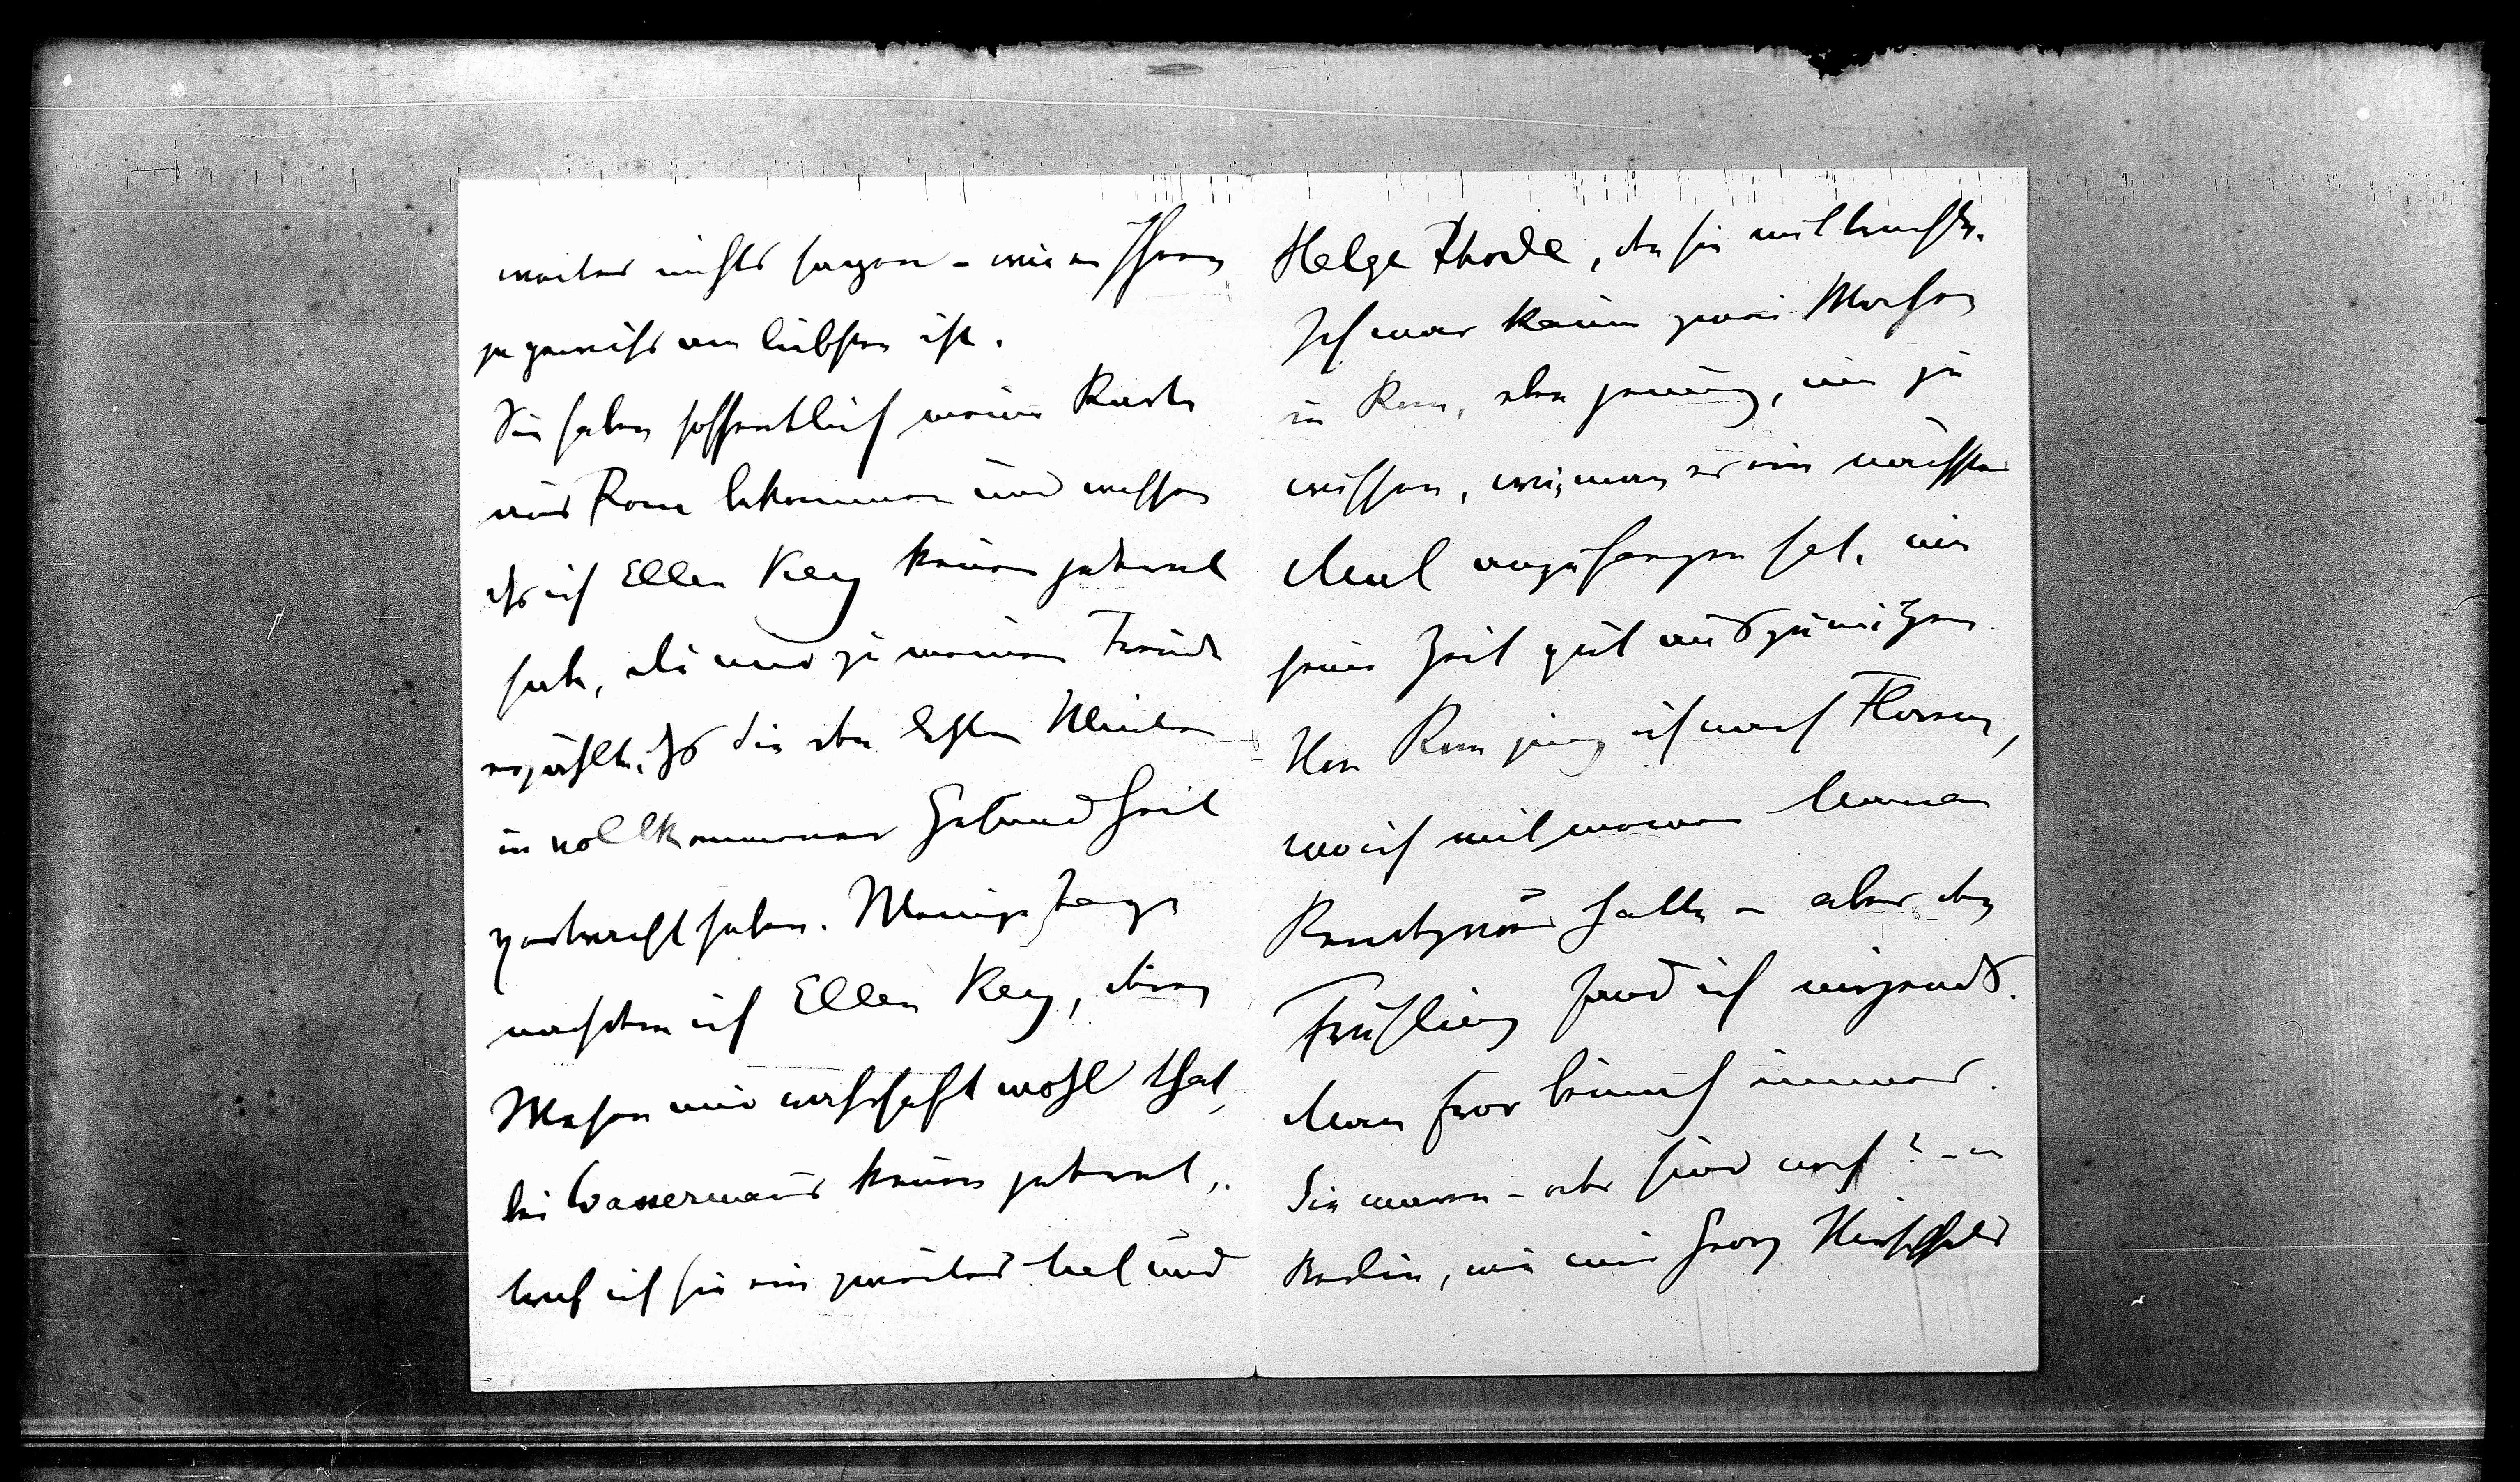 weiter nichts sagen – wie es Ihnen
ja gewiss am liebsten ist.
Sie haben hoffentlich meine Karte
aus Rom bekommen und wissen
dss ich Ellen Key kennen gelernt
habe, die mir zu meiner Freude
erzählte, dss Sie den letzten Winter
in vollkommener Gesundheit
verbracht haben. Wenige Tage
nachdem ich Ellen Key, deren
Wesen mir wahrhaft wohl that,
bei Wassermanns kennen gelernt,
traf ich sie ein zweites Mal und
Helge Rhode, den sie mitbrachte.
Ich war kaum zwei Wochen
in Rom, aber genug, um zu
wissen, wie man es ein nächstes
Mal anzufangen hat, um
seine Zeit gut auszunützen.
Von Rom ging ich nach Florenz,
wo ich mit meiner Mama
Rendezvous hatte – aber den
Frühling fand ich nirgends.
Man fror beinah immer.
Sie waren – oder sind noch? – in
Berlin, wie mir Georg Hirschfeld